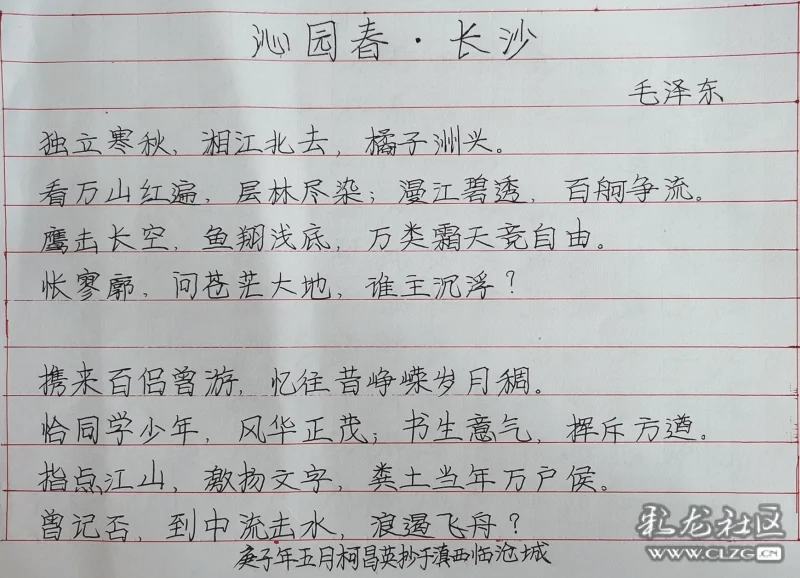 沁园春·长沙
毛泽东
独立寒秋,湘江北去,橘子洲兴。
看万山红遍,层林尽染;漫江碧透,百舸争流。
鹰击长空,鱼翔浅底,万类霜天竞自由。
怅寥廓,问苍茫大地,谁主沉浮?
携来百侣曾游,忆往昔峥嵘岁月稠。
恰同学少年,风华正茂;书生意气,挥斥方遒。
指点江山,激扬文字,粪土当年万户侯。
曾记否,到中流击水,浪遏飞舟?
庚子年五月柯昌英抄于滇西临沧城
彩龙社区
WWW.CLZG.CN